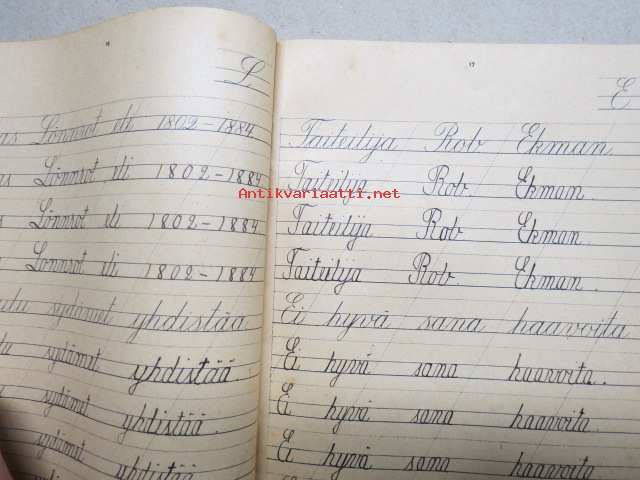 16
L
Lönnrot eli 1802-1884
Lönnrot eli 1802-1884
Lönnrot eli 1802-1884
Lönnrot eli 1802-1884
sydämet yhdistää
sydämet yhdistää.
sydämet yhdistää.
sydämet yhdistää
17
E
Taiteilija Rob Ekman
Taiteilija Rob. Ekman.
Taiteilija Rob. Ekman.
Taiteilija Rob. Ekman.
Ei hyvä sana haavoita
Ei hyvä sana haavoita.
Ei hyvä sana haavoita.
Ei hyvä sana haavoita
Antikvariaatti.net